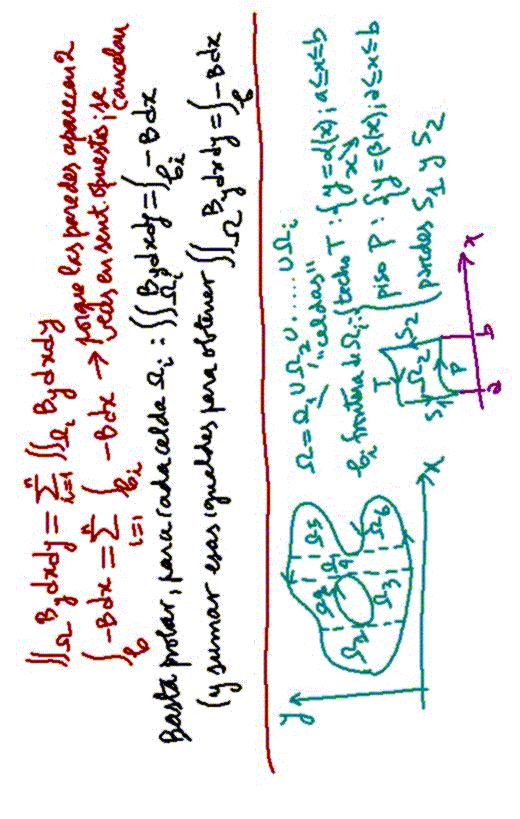 ∬_Ω B_y dxdy = Σ_{i=1}^{n} ∬_{Ω_i} B_y dxdy
∫_𝒞 -Bdx = Σ_{i=1}^{n} ∫_{𝒞_i} -Bdx → porque las paredes aparecen 2
veces en sent. opuestos; se
cancelan
Basta probar, para cada celda Ω_i : ∬_{Ω_i} B_y dxdy = ∫_{𝒞_i} -Bdx
(y sumar esas igualdades para obtener ∬_Ω B_y dxdy = ∫_𝒞 -Bdx
Ω = Ω_1 ∪ Ω_2 ∪ ..... ∪ Ω_i
"celdas"
𝒞_i frontera de Ω_i: { techo T : { y = α(x); a≤x≤b
x
piso P : { y = β(x); a≤x≤b
paredes S_1 y S_2
y
Ω_2
Ω_1
Ω_4
Ω_5
Ω_3
Ω_6
x
T
S_1
Ω_2
S_2
P
a
b
x